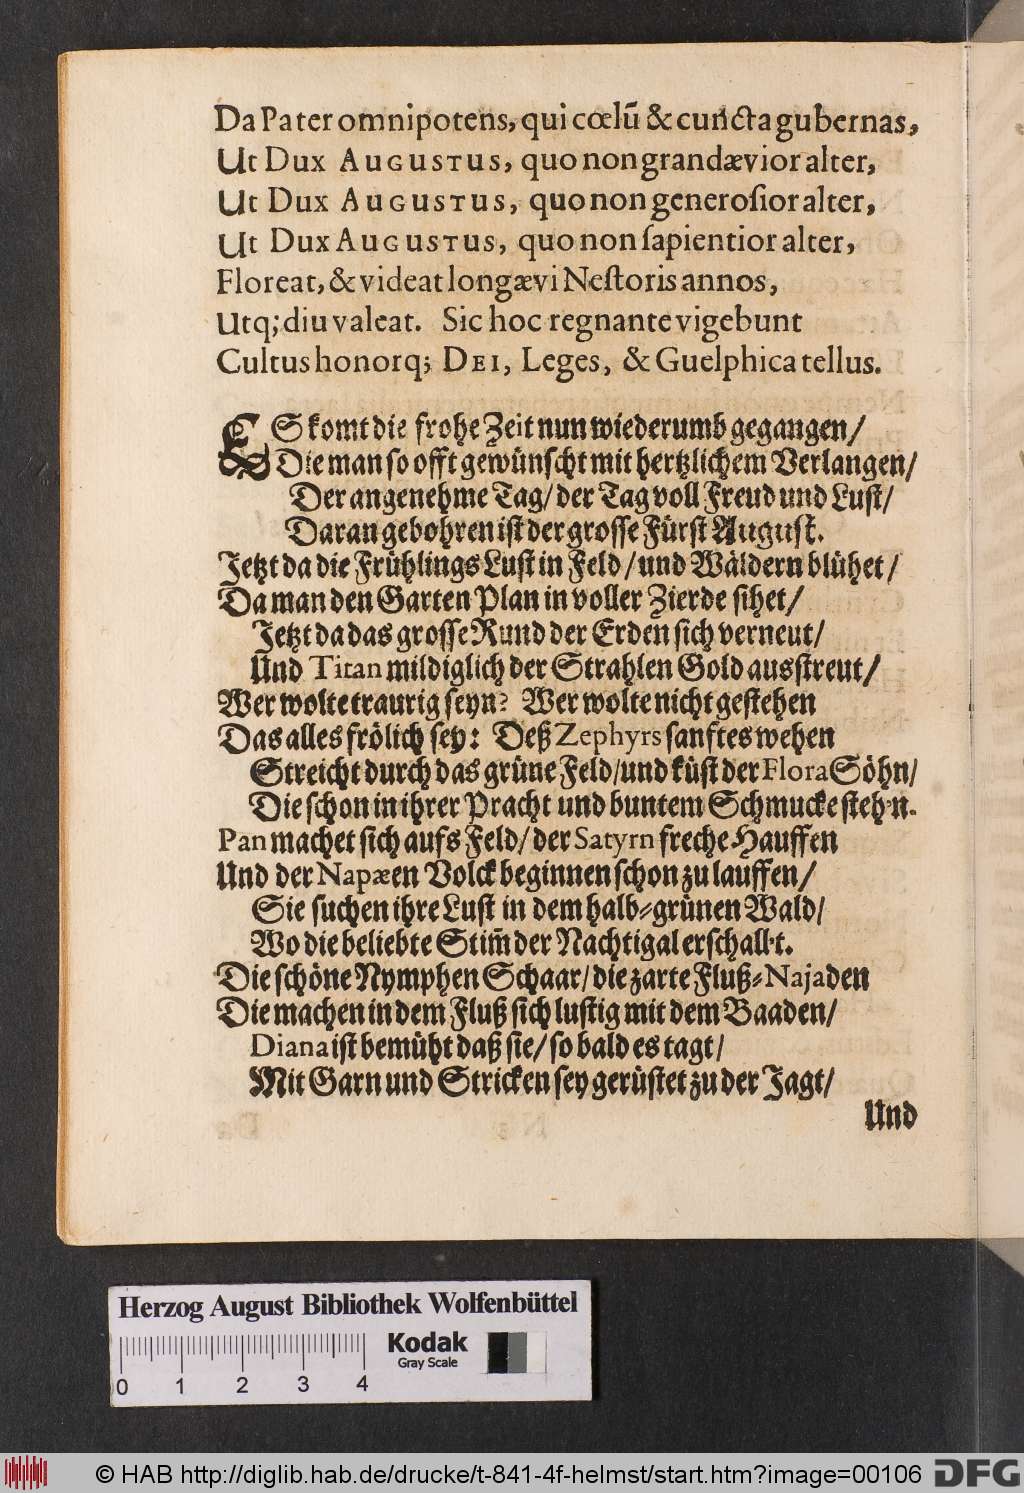 Da Pater omnipotens, qui cœlū & cuncta gubernas,
Ut Dux AUGUSTUS, quo non grandævior alter,
Ut Dux AUGUSTUS, quo non generoſior alter,
Ut Dux AUGUSTUS, quo non ſapientior alter,
Floreat, & videat longævi Neſtoris annos,
Utq; diu valeat. Sic hoc regnante vigebunt
Cultus honorq; DEI, Leges, & Guelphica tellus.
ES komt die frohe Zeit nun wiederumb gegangen/
Die man ſo offt gewünſcht mit hertzlichem Verlangen/
Der angenehme Tag/ der Tag voll Freud und Luſt/
Daran gebohren iſt der groſſe Fürſt Auguſt.
Jetzt da die Frühlings Luſt in Feld/ und Wäldern blühet/
Da man den Garten Plan in voller Zierde ſihet/
Jetzt da das groſſe Rund der Erden ſich verneut/
Und Titan mildiglich der Strahlen Gold ausſtreut/
Wer wolte traurig ſeyn? Wer wolte nicht geſtehen
Das alles frölich ſey: Deß Zephyrs ſanftes wehen
Streicht durch das grüne Feld/ und küſt der Flora Söhn/
Die ſchon in ihrer Pracht und buntem Schmucke ſteh'n.
Pan machet ſich aufs Feld/ der Satyrn freche Hauffen
Und der Napæen Volck beginnen ſchon zu lauffen/
Sie ſuchen ihre Luſt in dem halb-grünen Wald/
Wo die beliebte Stim̄ der Nachtigal erſchall't.
Die ſchöne Nymphen Schaar/ die zarte Fluß-Najaden
Die machen in dem Fluß ſich luſtig mit dem Baaden/
Diana iſt bemüht daß ſie/ ſo bald es tagt/
Mit Garn und Stricken ſey gerüſtet zu der Jagt/
Und
Herzog August Bibliothek Wolfenbüttel
Kodak
Gray Scale
0 1 2 3 4
© HAB http://diglib.hab.de/drucke/t-841-4f-helmst/start.htm?image=00106
DFG